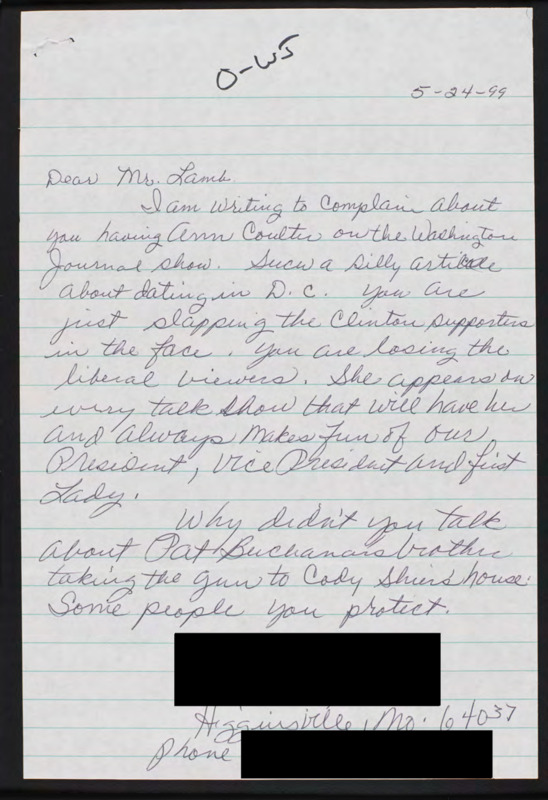 O-WJ
5-24-99
Dear Mr. Lamb
I am writing to complain about
you having Ann Coulter on the Washington
Journal show. Such a silly article
about dating in D.C. you are
just slapping the Clinton supporters
in the face. you are losing the
liberal viewers. She appears on
every talk show that will have her
and always makes fun of our
President, Vice President and first
Lady.
Why didn't you talk
about Pat Buchanans brother
taking the gun to Cody Shier's house.
Some people you protect.
Higginsville, Mo. 64037
Phone